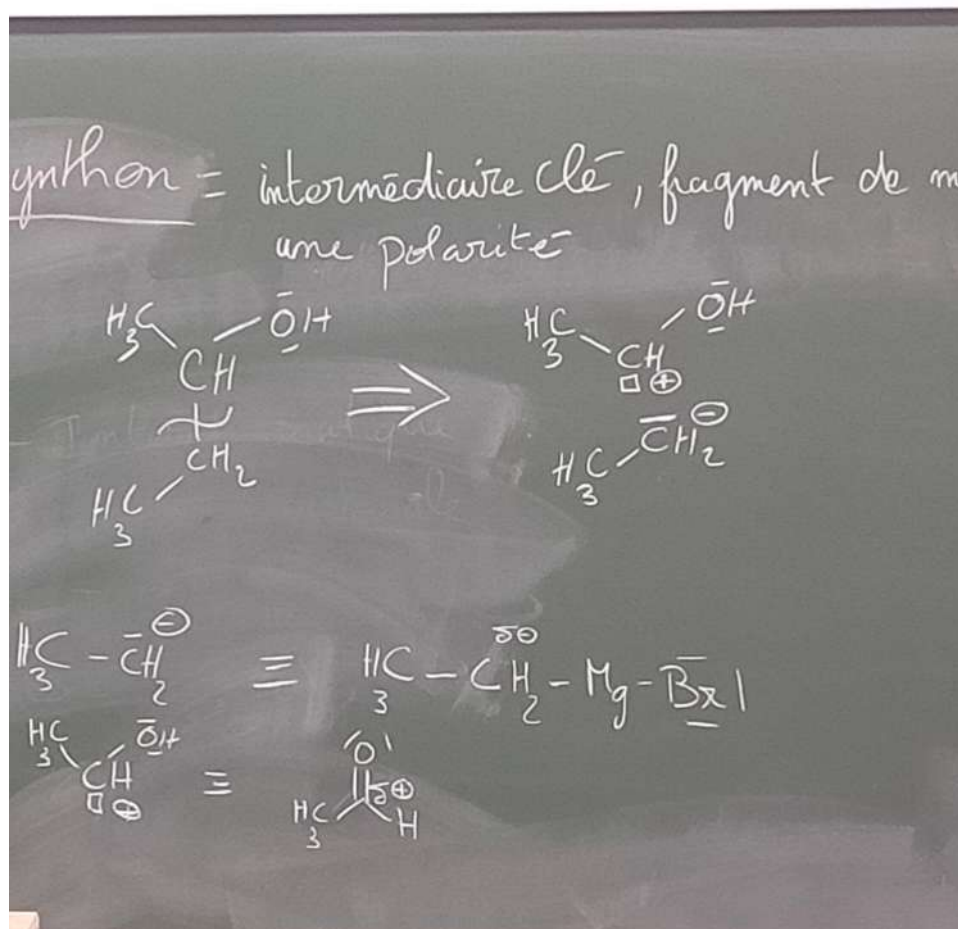 ynthon = intermédiaire clé, fragment de m
une polarité
H3C OH H3C OH
CH ⇒ CH
□ ⊕
CH2 CH2 ⊖
H3C H3C
H3C - CH2 ⊖ ≡ H3C - CH2 δ⊖ - Mg - Br
H3C OH O
CH ≡ δ⊕
□ ⊕ H3C H